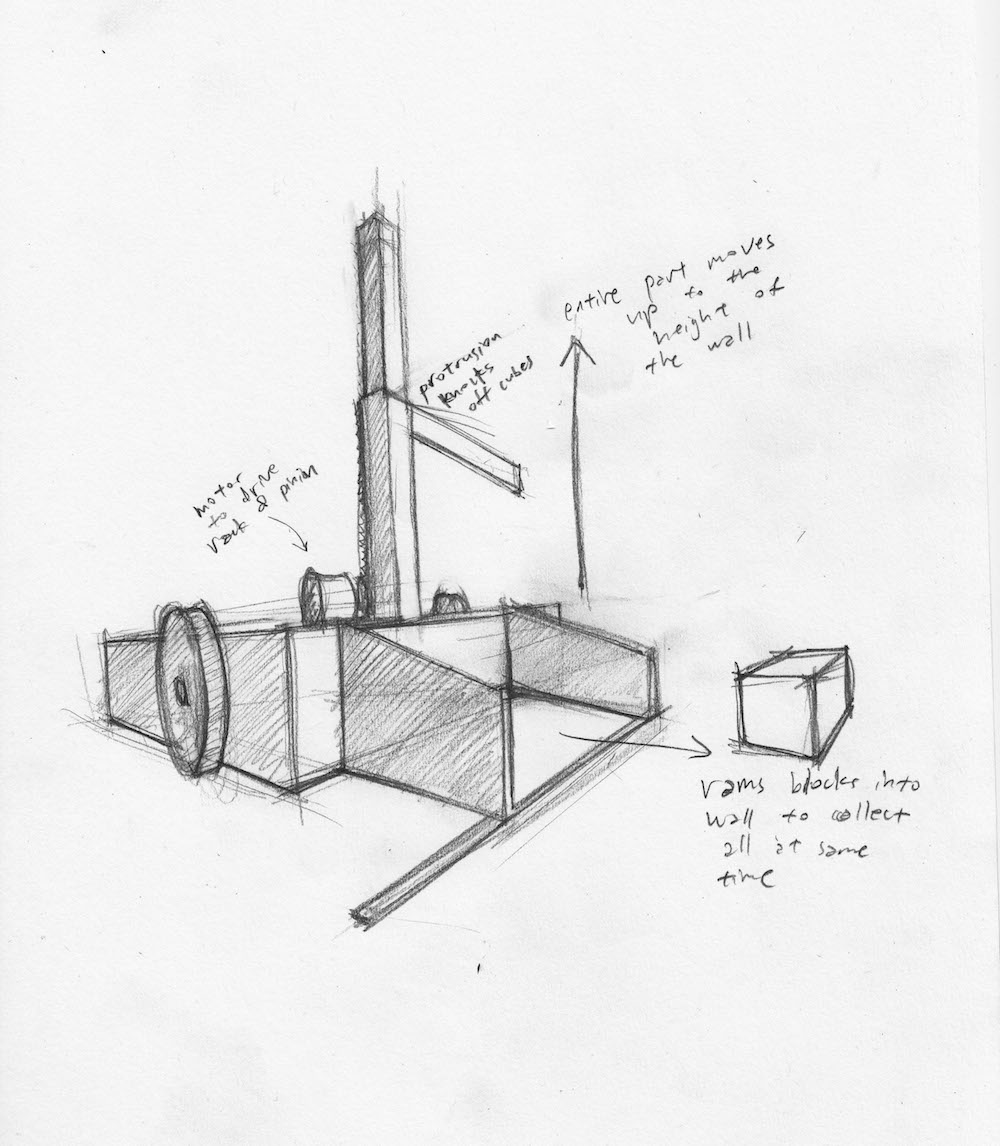 entire part moves
up to the
height of
the wall
protrusion
knocks
off cubes
motor
to drive
rack & pinion
rams blocks into
wall to collect
all at same
time